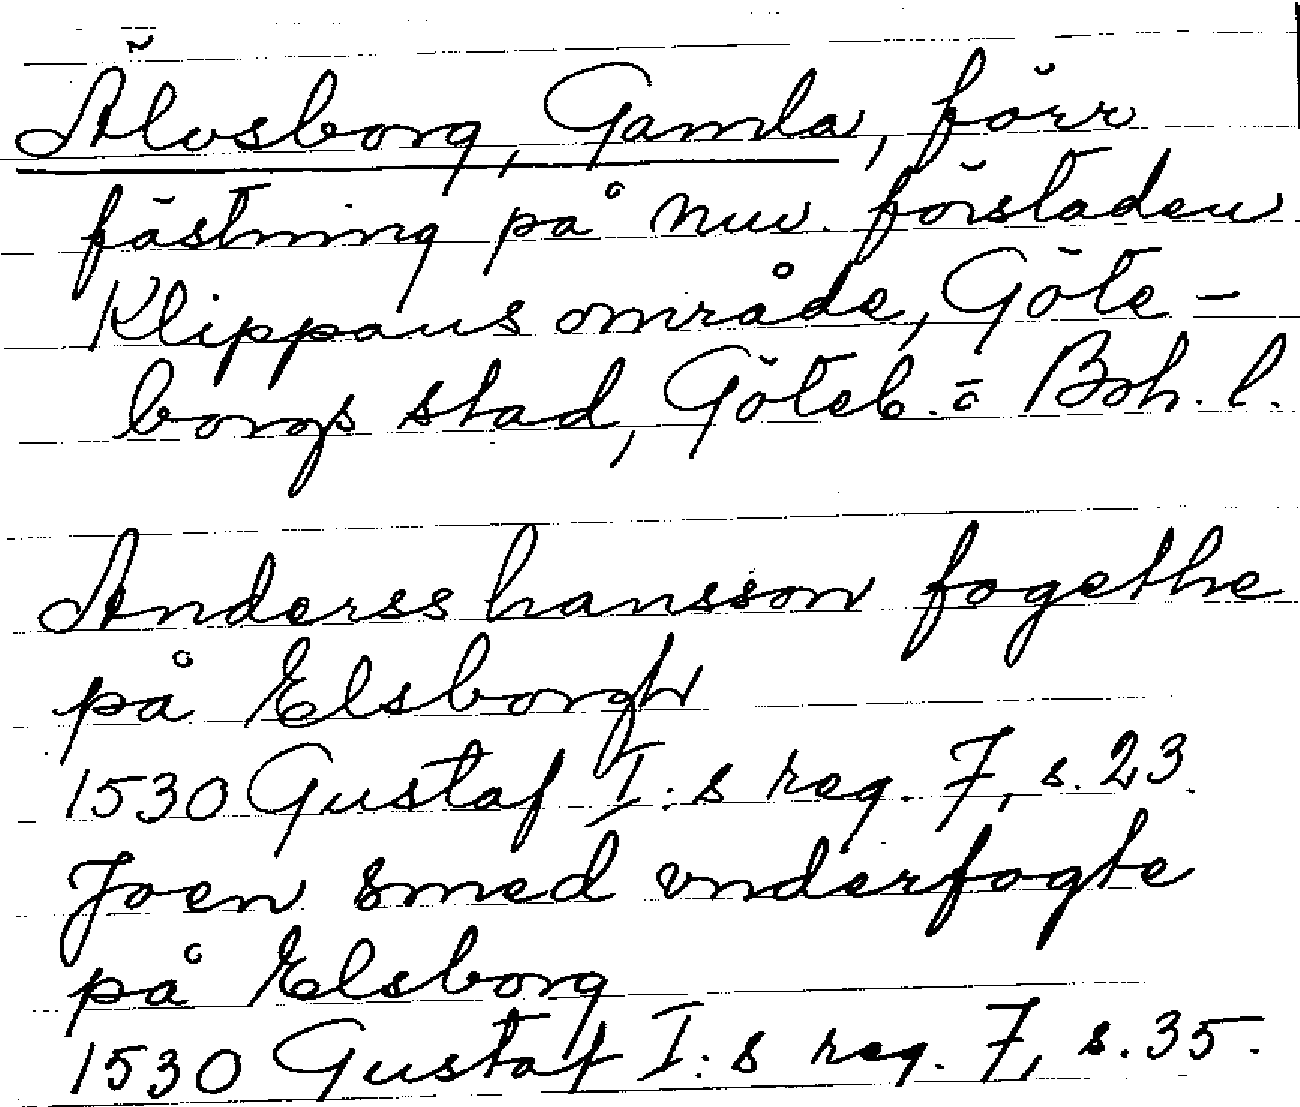 Älvsborg, Gamla, förr
fästning på nuv. förstaden
Klippans område, Göte-
borgs stad, Göteb. o Boh. l.
Anderss hansson fogethe
på Elsborgh
1530 Gustaf I:s reg. 7, s. 23.
Joen smed vnderfogte
på Elsborg
1530 Gustaf I:s reg. 7, s. 35.